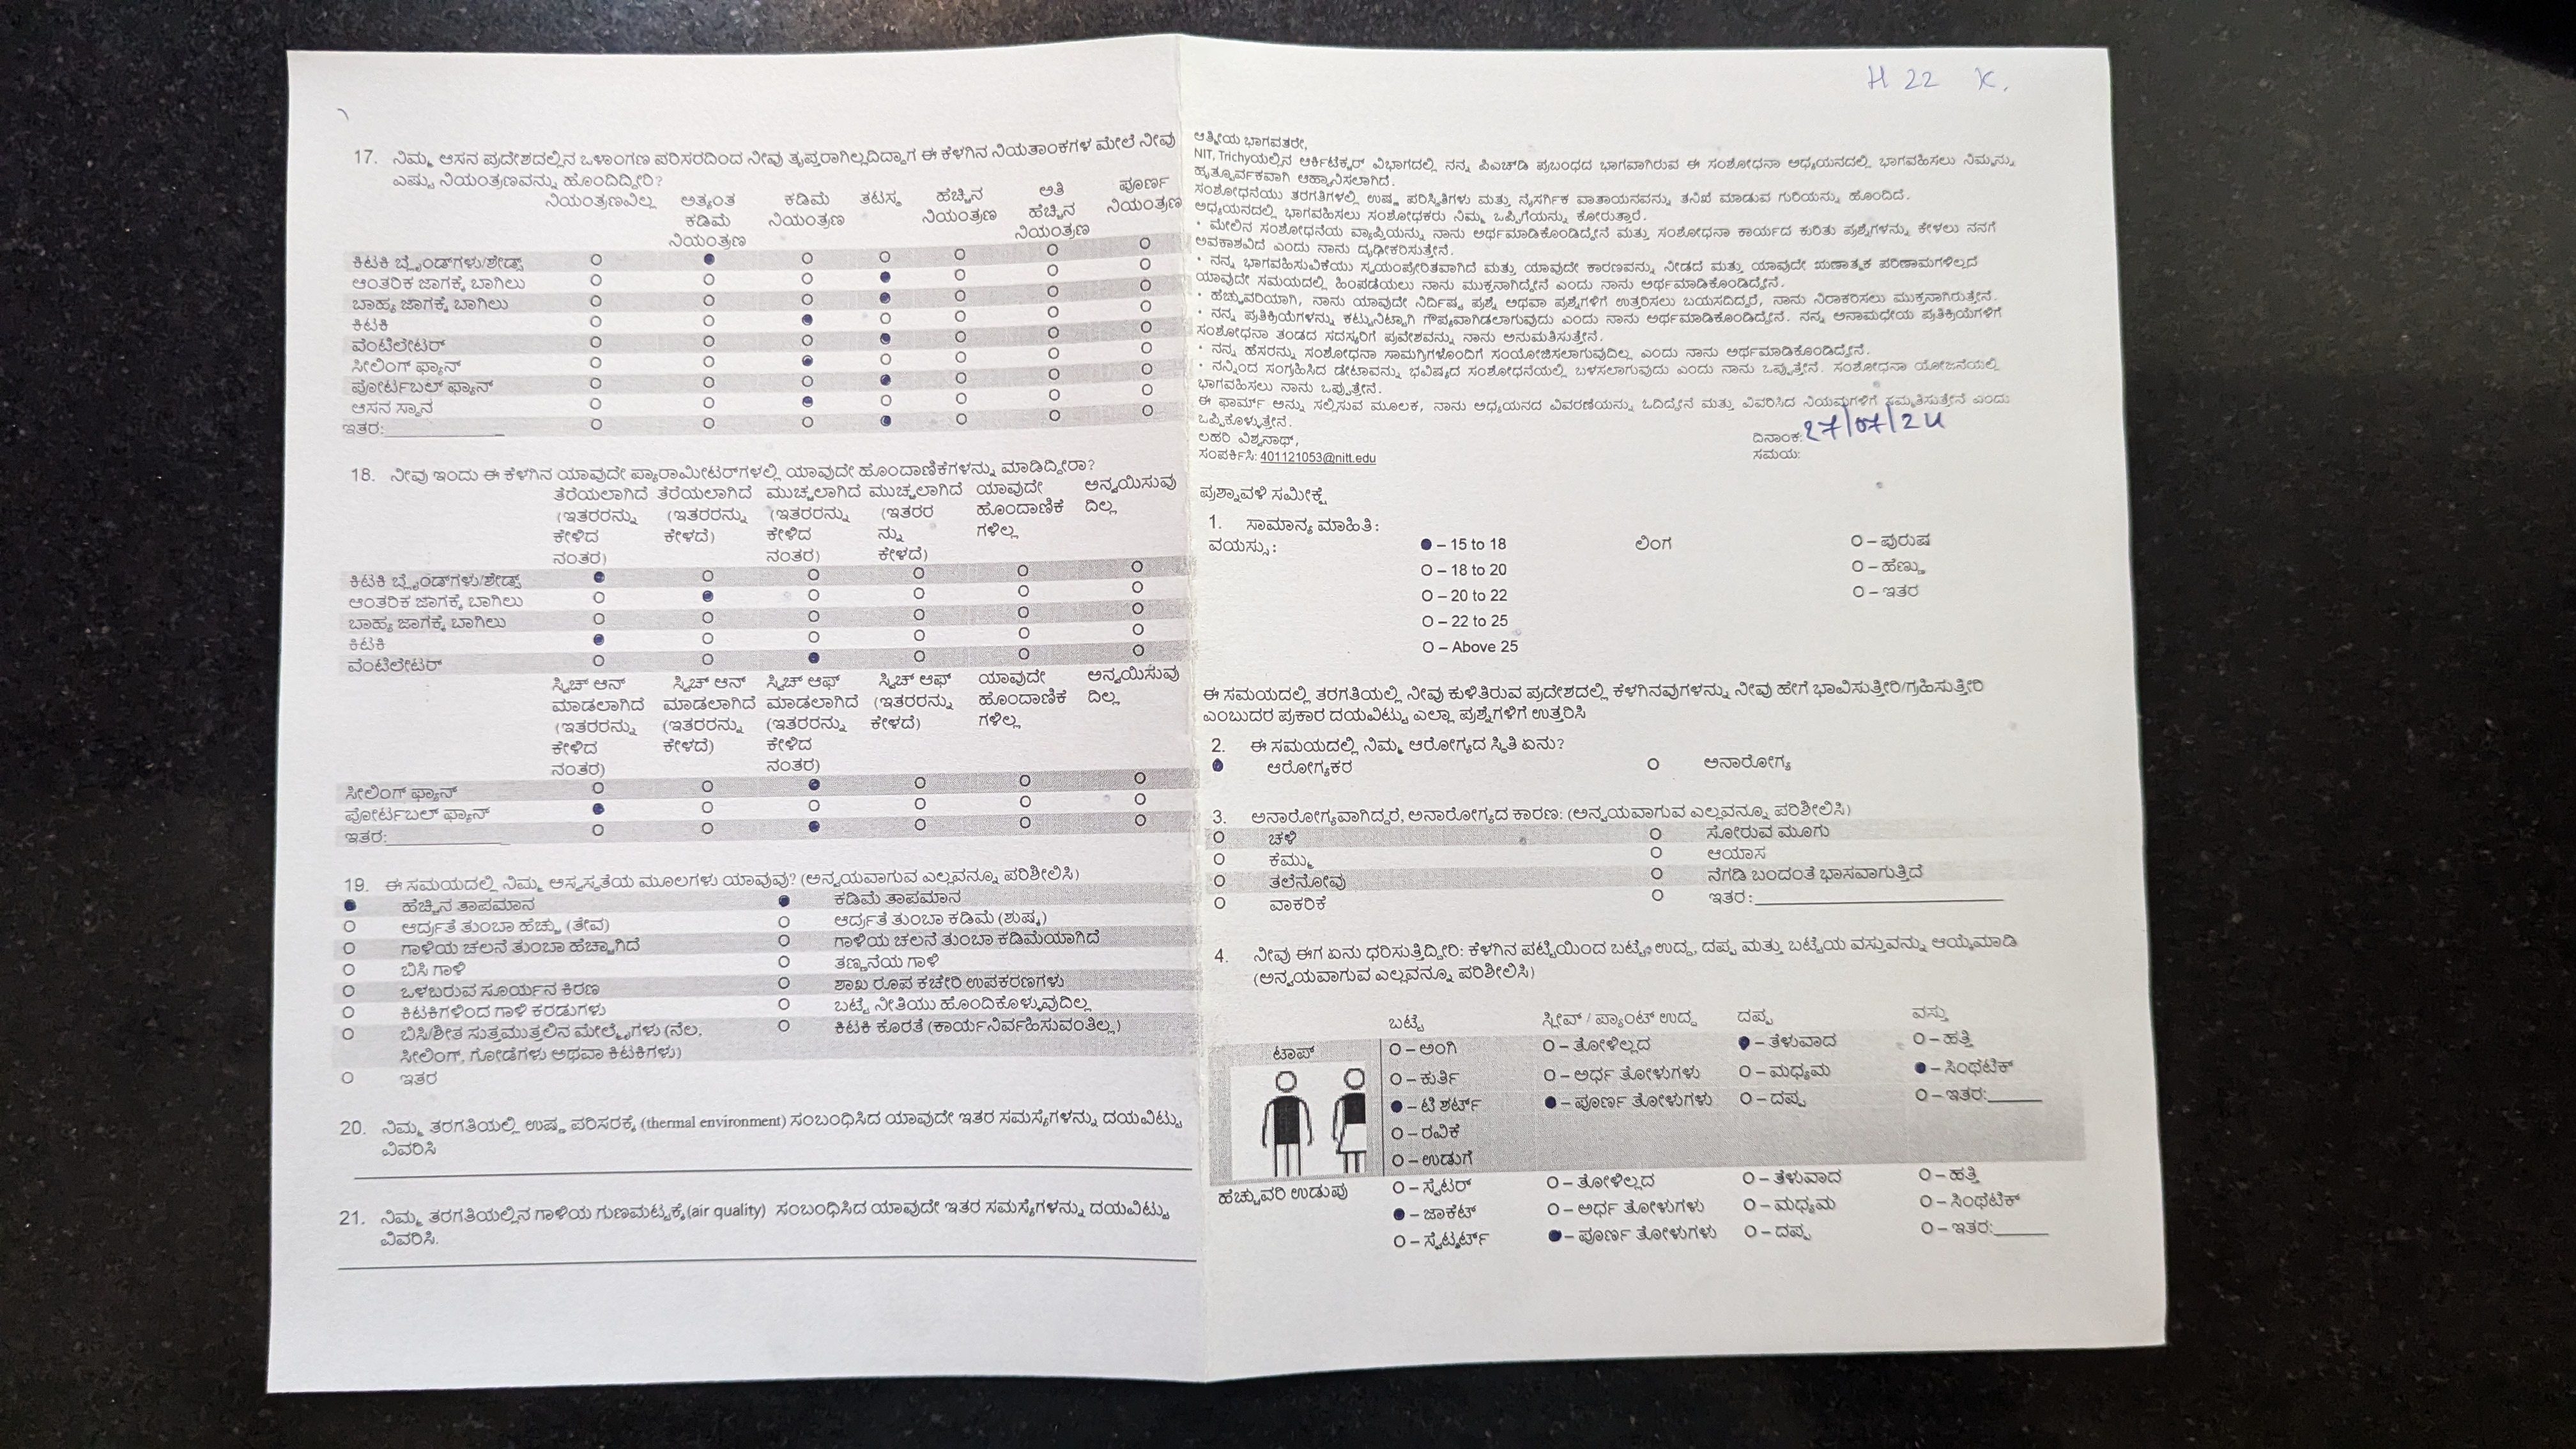 17. ನಿಮ್ಮ ಆಸನ ಪ್ರದೇಶದಲ್ಲಿನ ಒಳಾಂಗಣ ಪರಿಸರದಿಂದ ನೀವು ತೃಪ್ತರಾಗಿಲ್ಲದಿದ್ದಾಗ ಈ ಕೆಳಗಿನ ನಿಯತಾಂಕಗಳ ಮೇಲೆ ನೀವು
ಎಷ್ಟು ನಿಯಂತ್ರಣವನ್ನು ಹೊಂದಿದ್ದೀರಿ?
ನಿಯಂತ್ರಣವಿಲ್ಲ ಅತ್ಯಂತ ಕಡಿಮೆ ನಿಯಂತ್ರಣ ಕಡಿಮೆ ನಿಯಂತ್ರಣ ತಟಸ್ಥ ಹೆಚ್ಚಿನ ನಿಯಂತ್ರಣ ಅತಿ ಹೆಚ್ಚಿನ ನಿಯಂತ್ರಣ ಪೂರ್ಣ ನಿಯಂತ್ರಣ
ಕಿಟಕಿ ಬ್ಲೈಂಡ್‌ಗಳು/ಶೇಡ್ಸ್
ಆಂತರಿಕ ಜಾಗಕ್ಕೆ ಬಾಗಿಲು
ಬಾಹ್ಯ ಜಾಗಕ್ಕೆ ಬಾಗಿಲು
ಕಿಟಕಿ
ವೆಂಟಿಲೇಟರ್
ಸೀಲಿಂಗ್ ಫ್ಯಾನ್
ಪೋರ್ಟಬಲ್ ಫ್ಯಾನ್
ಆಸನ ಸ್ಥಾನ
ಇತರ:
18. ನೀವು ಇಂದು ಈ ಕೆಳಗಿನ ಯಾವುದೇ ಪ್ಯಾರಾಮೀಟರ್‌ಗಳಲ್ಲಿ ಯಾವುದೇ ಹೊಂದಾಣಿಕೆಗಳನ್ನು ಮಾಡಿದ್ದೀರಾ?
ತೆರೆಯಲಾಗಿದೆ (ಇತರರನ್ನು ಕೇಳಿದ ನಂತರ) ತೆರೆಯಲಾಗಿದೆ (ಇತರರನ್ನು ಕೇಳದೆ) ಮುಚ್ಚಲಾಗಿದೆ (ಇತರರನ್ನು ಕೇಳಿದ ನಂತರ) ಮುಚ್ಚಲಾಗಿದೆ (ಇತರರನ್ನು ಕೇಳದೆ) ಯಾವುದೇ ಹೊಂದಾಣಿಕೆಗಳಿಲ್ಲ ಅನ್ವಯಿಸುವುದಿಲ್ಲ
ಕಿಟಕಿ ಬ್ಲೈಂಡ್‌ಗಳು/ಶೇಡ್ಸ್
ಆಂತರಿಕ ಜಾಗಕ್ಕೆ ಬಾಗಿಲು
ಬಾಹ್ಯ ಜಾಗಕ್ಕೆ ಬಾಗಿಲು
ಕಿಟಕಿ
ವೆಂಟಿಲೇಟರ್
ಸ್ವಿಚ್ ಆನ್ ಮಾಡಲಾಗಿದೆ (ಇತರರನ್ನು ಕೇಳಿದ ನಂತರ) ಸ್ವಿಚ್ ಆನ್ ಮಾಡಲಾಗಿದೆ (ಇತರರನ್ನು ಕೇಳದೆ) ಸ್ವಿಚ್ ಆಫ್ ಮಾಡಲಾಗಿದೆ (ಇತರರನ್ನು ಕೇಳಿದ ನಂತರ) ಸ್ವಿಚ್ ಆಫ್ (ಇತರರನ್ನು ಕೇಳದೆ) ಯಾವುದೇ ಹೊಂದಾಣಿಕೆಗಳಿಲ್ಲ ಅನ್ವಯಿಸುವುದಿಲ್ಲ
ಸೀಲಿಂಗ್ ಫ್ಯಾನ್
ಪೋರ್ಟಬಲ್ ಫ್ಯಾನ್
ಇತರ:
19. ಈ ಸಮಯದಲ್ಲಿ ನಿಮ್ಮ ಅಸ್ವಸ್ಥತೆಯ ಮೂಲಗಳು ಯಾವುವು? (ಅನ್ವಯವಾಗುವ ಎಲ್ಲವನ್ನೂ ಪರಿಶೀಲಿಸಿ)
ಹೆಚ್ಚಿನ ತಾಪಮಾನ ಕಡಿಮೆ ತಾಪಮಾನ
ಆರ್ದ್ರತೆ ತುಂಬಾ ಹೆಚ್ಚು (ತೇವ) ಆರ್ದ್ರತೆ ತುಂಬಾ ಕಡಿಮೆ (ಶುಷ್ಕ)
ಗಾಳಿಯ ಚಲನೆ ತುಂಬಾ ಹೆಚ್ಚಾಗಿದೆ ಗಾಳಿಯ ಚಲನೆ ತುಂಬಾ ಕಡಿಮೆಯಾಗಿದೆ
ಬಿಸಿ ಗಾಳಿ ತಣ್ಣನೆಯ ಗಾಳಿ
ಒಳಬರುವ ಸೂರ್ಯನ ಕಿರಣ ಶಾಖ ರೂಪ ಕಚೇರಿ ಉಪಕರಣಗಳು
ಕಿಟಕಿಗಳಿಂದ ಗಾಳಿ ಕರಡುಗಳು ಬಟ್ಟೆ ನೀತಿಯು ಹೊಂದಿಕೊಳ್ಳುವುದಿಲ್ಲ
ಬಿಸಿ/ಶೀತ ಸುತ್ತಮುತ್ತಲಿನ ಮೇಲ್ಮೈಗಳು (ನೆಲ, ಕಿಟಕಿ ಕೊರತೆ (ಕಾರ್ಯನಿರ್ವಹಿಸುವಂತಿಲ್ಲ)
ಸೀಲಿಂಗ್, ಗೋಡೆಗಳು ಅಥವಾ ಕಿಟಕಿಗಳು)
ಇತರ
20. ನಿಮ್ಮ ತರಗತಿಯಲ್ಲಿ ಉಷ್ಣ ಪರಿಸರಕ್ಕೆ (thermal environment) ಸಂಬಂಧಿಸಿದ ಯಾವುದೇ ಇತರ ಸಮಸ್ಯೆಗಳನ್ನು ದಯವಿಟ್ಟು
ವಿವರಿಸಿ
21. ನಿಮ್ಮ ತರಗತಿಯಲ್ಲಿನ ಗಾಳಿಯ ಗುಣಮಟ್ಟಕ್ಕೆ(air quality) ಸಂಬಂಧಿಸಿದ ಯಾವುದೇ ಇತರ ಸಮಸ್ಯೆಗಳನ್ನು ದಯವಿಟ್ಟು
ವಿವರಿಸಿ.
H 22 K.
ಆತ್ಮೀಯ ಭಾಗವತರೇ,
NIT, Trichyಯಲ್ಲಿನ ಆರ್ಕಿಟೆಕ್ಚರ್ ವಿಭಾಗದಲ್ಲಿ ನನ್ನ ಪಿಎಚ್‌ಡಿ ಪ್ರಬಂಧದ ಭಾಗವಾಗಿರುವ ಈ ಸಂಶೋಧನಾ ಅಧ್ಯಯನದಲ್ಲಿ ಭಾಗವಹಿಸಲು ನಿಮ್ಮನ್ನು
ಹೃತ್ಪೂರ್ವಕವಾಗಿ ಆಹ್ವಾನಿಸಲಾಗಿದೆ.
ಸಂಶೋಧನೆಯು ತರಗತಿಗಳಲ್ಲಿ ಉಷ್ಣ ಪರಿಸ್ಥಿತಿಗಳು ಮತ್ತು ನೈಸರ್ಗಿಕ ವಾತಾಯನವನ್ನು ತನಿಖೆ ಮಾಡುವ ಗುರಿಯನ್ನು ಹೊಂದಿದೆ.
ಅಧ್ಯಯನದಲ್ಲಿ ಭಾಗವಹಿಸಲು ಸಂಶೋಧಕರು ನಿಮ್ಮ ಒಪ್ಪಿಗೆಯನ್ನು ಕೋರುತ್ತಾರೆ.
• ಮೇಲಿನ ಸಂಶೋಧನೆಯ ವ್ಯಾಪ್ತಿಯನ್ನು ನಾನು ಅರ್ಥಮಾಡಿಕೊಂಡಿದ್ದೇನೆ ಮತ್ತು ಸಂಶೋಧನಾ ಕಾರ್ಯದ ಕುರಿತು ಪ್ರಶ್ನೆಗಳನ್ನು ಕೇಳಲು ನನಗೆ
ಅವಕಾಶವಿದೆ ಎಂದು ನಾನು ದೃಢೀಕರಿಸುತ್ತೇನೆ.
• ನನ್ನ ಭಾಗವಹಿಸುವಿಕೆಯು ಸ್ವಯಂಪ್ರೇರಿತವಾಗಿದೆ ಮತ್ತು ಯಾವುದೇ ಕಾರಣವನ್ನು ನೀಡದೆ ಮತ್ತು ಯಾವುದೇ ಋಣಾತ್ಮಕ ಪರಿಣಾಮಗಳಿಲ್ಲದೆ
ಯಾವುದೇ ಸಮಯದಲ್ಲಿ ಹಿಂಪಡೆಯಲು ನಾನು ಮುಕ್ತನಾಗಿದ್ದೇನೆ ಎಂದು ನಾನು ಅರ್ಥಮಾಡಿಕೊಂಡಿದ್ದೇನೆ.
• ಹೆಚ್ಚುವರಿಯಾಗಿ, ನಾನು ಯಾವುದೇ ನಿರ್ದಿಷ್ಟ ಪ್ರಶ್ನೆ ಅಥವಾ ಪ್ರಶ್ನೆಗಳಿಗೆ ಉತ್ತರಿಸಲು ಬಯಸದಿದ್ದರೆ, ನಾನು ನಿರಾಕರಿಸಲು ಮುಕ್ತನಾಗಿರುತ್ತೇನೆ.
• ನನ್ನ ಪ್ರತಿಕ್ರಿಯೆಗಳನ್ನು ಕಟ್ಟುನಿಟ್ಟಾಗಿ ಗೌಪ್ಯವಾಗಿಡಲಾಗುವುದು ಎಂದು ನಾನು ಅರ್ಥಮಾಡಿಕೊಂಡಿದ್ದೇನೆ. ನನ್ನ ಅನಾಮಧೇಯ ಪ್ರತಿಕ್ರಿಯೆಗಳಿಗೆ
ಸಂಶೋಧನಾ ತಂಡದ ಸದಸ್ಯರಿಗೆ ಪ್ರವೇಶವನ್ನು ನಾನು ಅನುಮತಿಸುತ್ತೇನೆ.
• ನನ್ನ ಹೆಸರನ್ನು ಸಂಶೋಧನಾ ಸಾಮಗ್ರಿಗಳೊಂದಿಗೆ ಸಂಯೋಜಿಸಲಾಗುವುದಿಲ್ಲ ಎಂದು ನಾನು ಅರ್ಥಮಾಡಿಕೊಂಡಿದ್ದೇನೆ.
• ನನ್ನಿಂದ ಸಂಗ್ರಹಿಸಿದ ಡೇಟಾವನ್ನು ಭವಿಷ್ಯದ ಸಂಶೋಧನೆಯಲ್ಲಿ ಬಳಸಲಾಗುವುದು ಎಂದು ನಾನು ಒಪ್ಪುತ್ತೇನೆ. ಸಂಶೋಧನಾ ಯೋಜನೆಯಲ್ಲಿ
ಭಾಗವಹಿಸಲು ನಾನು ಒಪ್ಪುತ್ತೇನೆ.
ಈ ಫಾರ್ಮ್ ಅನ್ನು ಸಲ್ಲಿಸುವ ಮೂಲಕ, ನಾನು ಅಧ್ಯಯನದ ವಿವರಣೆಯನ್ನು ಓದಿದ್ದೇನೆ ಮತ್ತು ವಿವರಿಸಿದ ನಿಯಮಗಳಿಗೆ ಸಮ್ಮತಿಸುತ್ತೇನೆ ಎಂದು
ಒಪ್ಪಿಕೊಳ್ಳುತ್ತೇನೆ.
ಲಹರಿ ವಿಶ್ವನಾಥ್, ದಿನಾಂಕ: 27/07/24
ಸಂಪರ್ಕಿಸಿ: 401121053@nitt.edu ಸಮಯ:
ಪ್ರಶ್ನಾವಳಿ ಸಮೀಕ್ಷೆ
1. ಸಾಮಾನ್ಯ ಮಾಹಿತಿ:
ವಯಸ್ಸು: – 15 to 18 ಲಿಂಗ O – ಪುರುಷ
O – 18 to 20 O – ಹೆಣ್ಣು
O – 20 to 22 O – ಇತರ
O – 22 to 25
O – Above 25
ಈ ಸಮಯದಲ್ಲಿ ತರಗತಿಯಲ್ಲಿ ನೀವು ಕುಳಿತಿರುವ ಪ್ರದೇಶದಲ್ಲಿ ಕೆಳಗಿನವುಗಳನ್ನು ನೀವು ಹೇಗೆ ಭಾವಿಸುತ್ತೀರಿ/ಗ್ರಹಿಸುತ್ತೀರಿ
ಎಂಬುದರ ಪ್ರಕಾರ ದಯವಿಟ್ಟು ಎಲ್ಲಾ ಪ್ರಶ್ನೆಗಳಿಗೆ ಉತ್ತರಿಸಿ
2. ಈ ಸಮಯದಲ್ಲಿ ನಿಮ್ಮ ಆರೋಗ್ಯದ ಸ್ಥಿತಿ ಏನು?
ಆರೋಗ್ಯಕರ O ಅನಾರೋಗ್ಯ
3. ಅನಾರೋಗ್ಯವಾಗಿದ್ದರೆ, ಅನಾರೋಗ್ಯದ ಕಾರಣ: (ಅನ್ವಯವಾಗುವ ಎಲ್ಲವನ್ನೂ ಪರಿಶೀಲಿಸಿ)
O ಚಳಿ O ಸೋರುವ ಮೂಗು
O ಕೆಮ್ಮು O ಆಯಾಸ
O ತಲೆನೋವು O ನೆಗಡಿ ಬಂದಂತೆ ಭಾಸವಾಗುತ್ತಿದೆ
O ವಾಕರಿಕೆ O ಇತರ:
4. ನೀವು ಈಗ ಏನು ಧರಿಸುತ್ತಿದ್ದೀರಿ: ಕೆಳಗಿನ ಪಟ್ಟಿಯಿಂದ ಬಟ್ಟೆ, ಉದ್ದ, ದಪ್ಪ ಮತ್ತು ಬಟ್ಟೆಯ ವಸ್ತುವನ್ನು ಆಯ್ಕೆಮಾಡಿ
(ಅನ್ವಯವಾಗುವ ಎಲ್ಲವನ್ನೂ ಪರಿಶೀಲಿಸಿ)
ಬಟ್ಟೆ ಸ್ಲೀವ್ / ಪ್ಯಾಂಟ್ ಉದ್ದ ದಪ್ಪ ವಸ್ತು
ಟಾಪ್ O – ಅಂಗಿ O – ತೋಳಿಲ್ಲದ – ತೆಳುವಾದ O – ಹತ್ತಿ
O – ಕುರ್ತಿ O – ಅರ್ಧ ತೋಳುಗಳು O – ಮಧ್ಯಮ – ಸಿಂಥಟಿಕ್
– ಟಿ ಶರ್ಟ್ – ಪೂರ್ಣ ತೋಳುಗಳು O – ದಪ್ಪ O – ಇತರ:
O – ರವಿಕೆ
O – ಉಡುಗೆ
ಹೆಚ್ಚುವರಿ ಉಡುಪು O – ಸ್ವೆಟರ್ O – ತೋಳಿಲ್ಲದ O – ತೆಳುವಾದ O – ಹತ್ತಿ
– ಜಾಕೆಟ್ O – ಅರ್ಧ ತೋಳುಗಳು O – ಮಧ್ಯಮ O – ಸಿಂಥಟಿಕ್
O – ಸ್ವೆಟ್ಶರ್ಟ್ – ಪೂರ್ಣ ತೋಳುಗಳು O – ದಪ್ಪ O – ಇತರ: